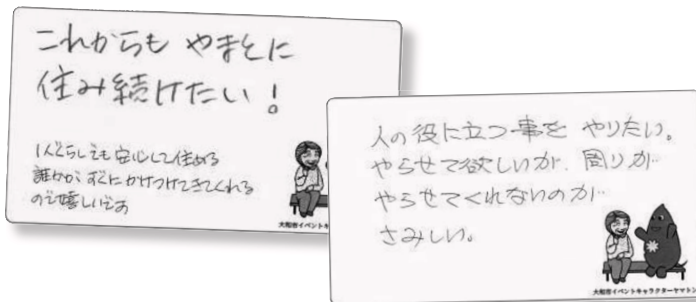 これからも やまとに
住み続けたい！
1人ぐらしでも安心して住める
誰かが すぐにかけつけてきてくれる
ので嬉しいです
大和市イベントキ
人の役に立つ事を やりたい。
やらせて欲しいが、周りが
やらせてくれないのが
さみしい。
大和市イベントキャラクターヤマトン